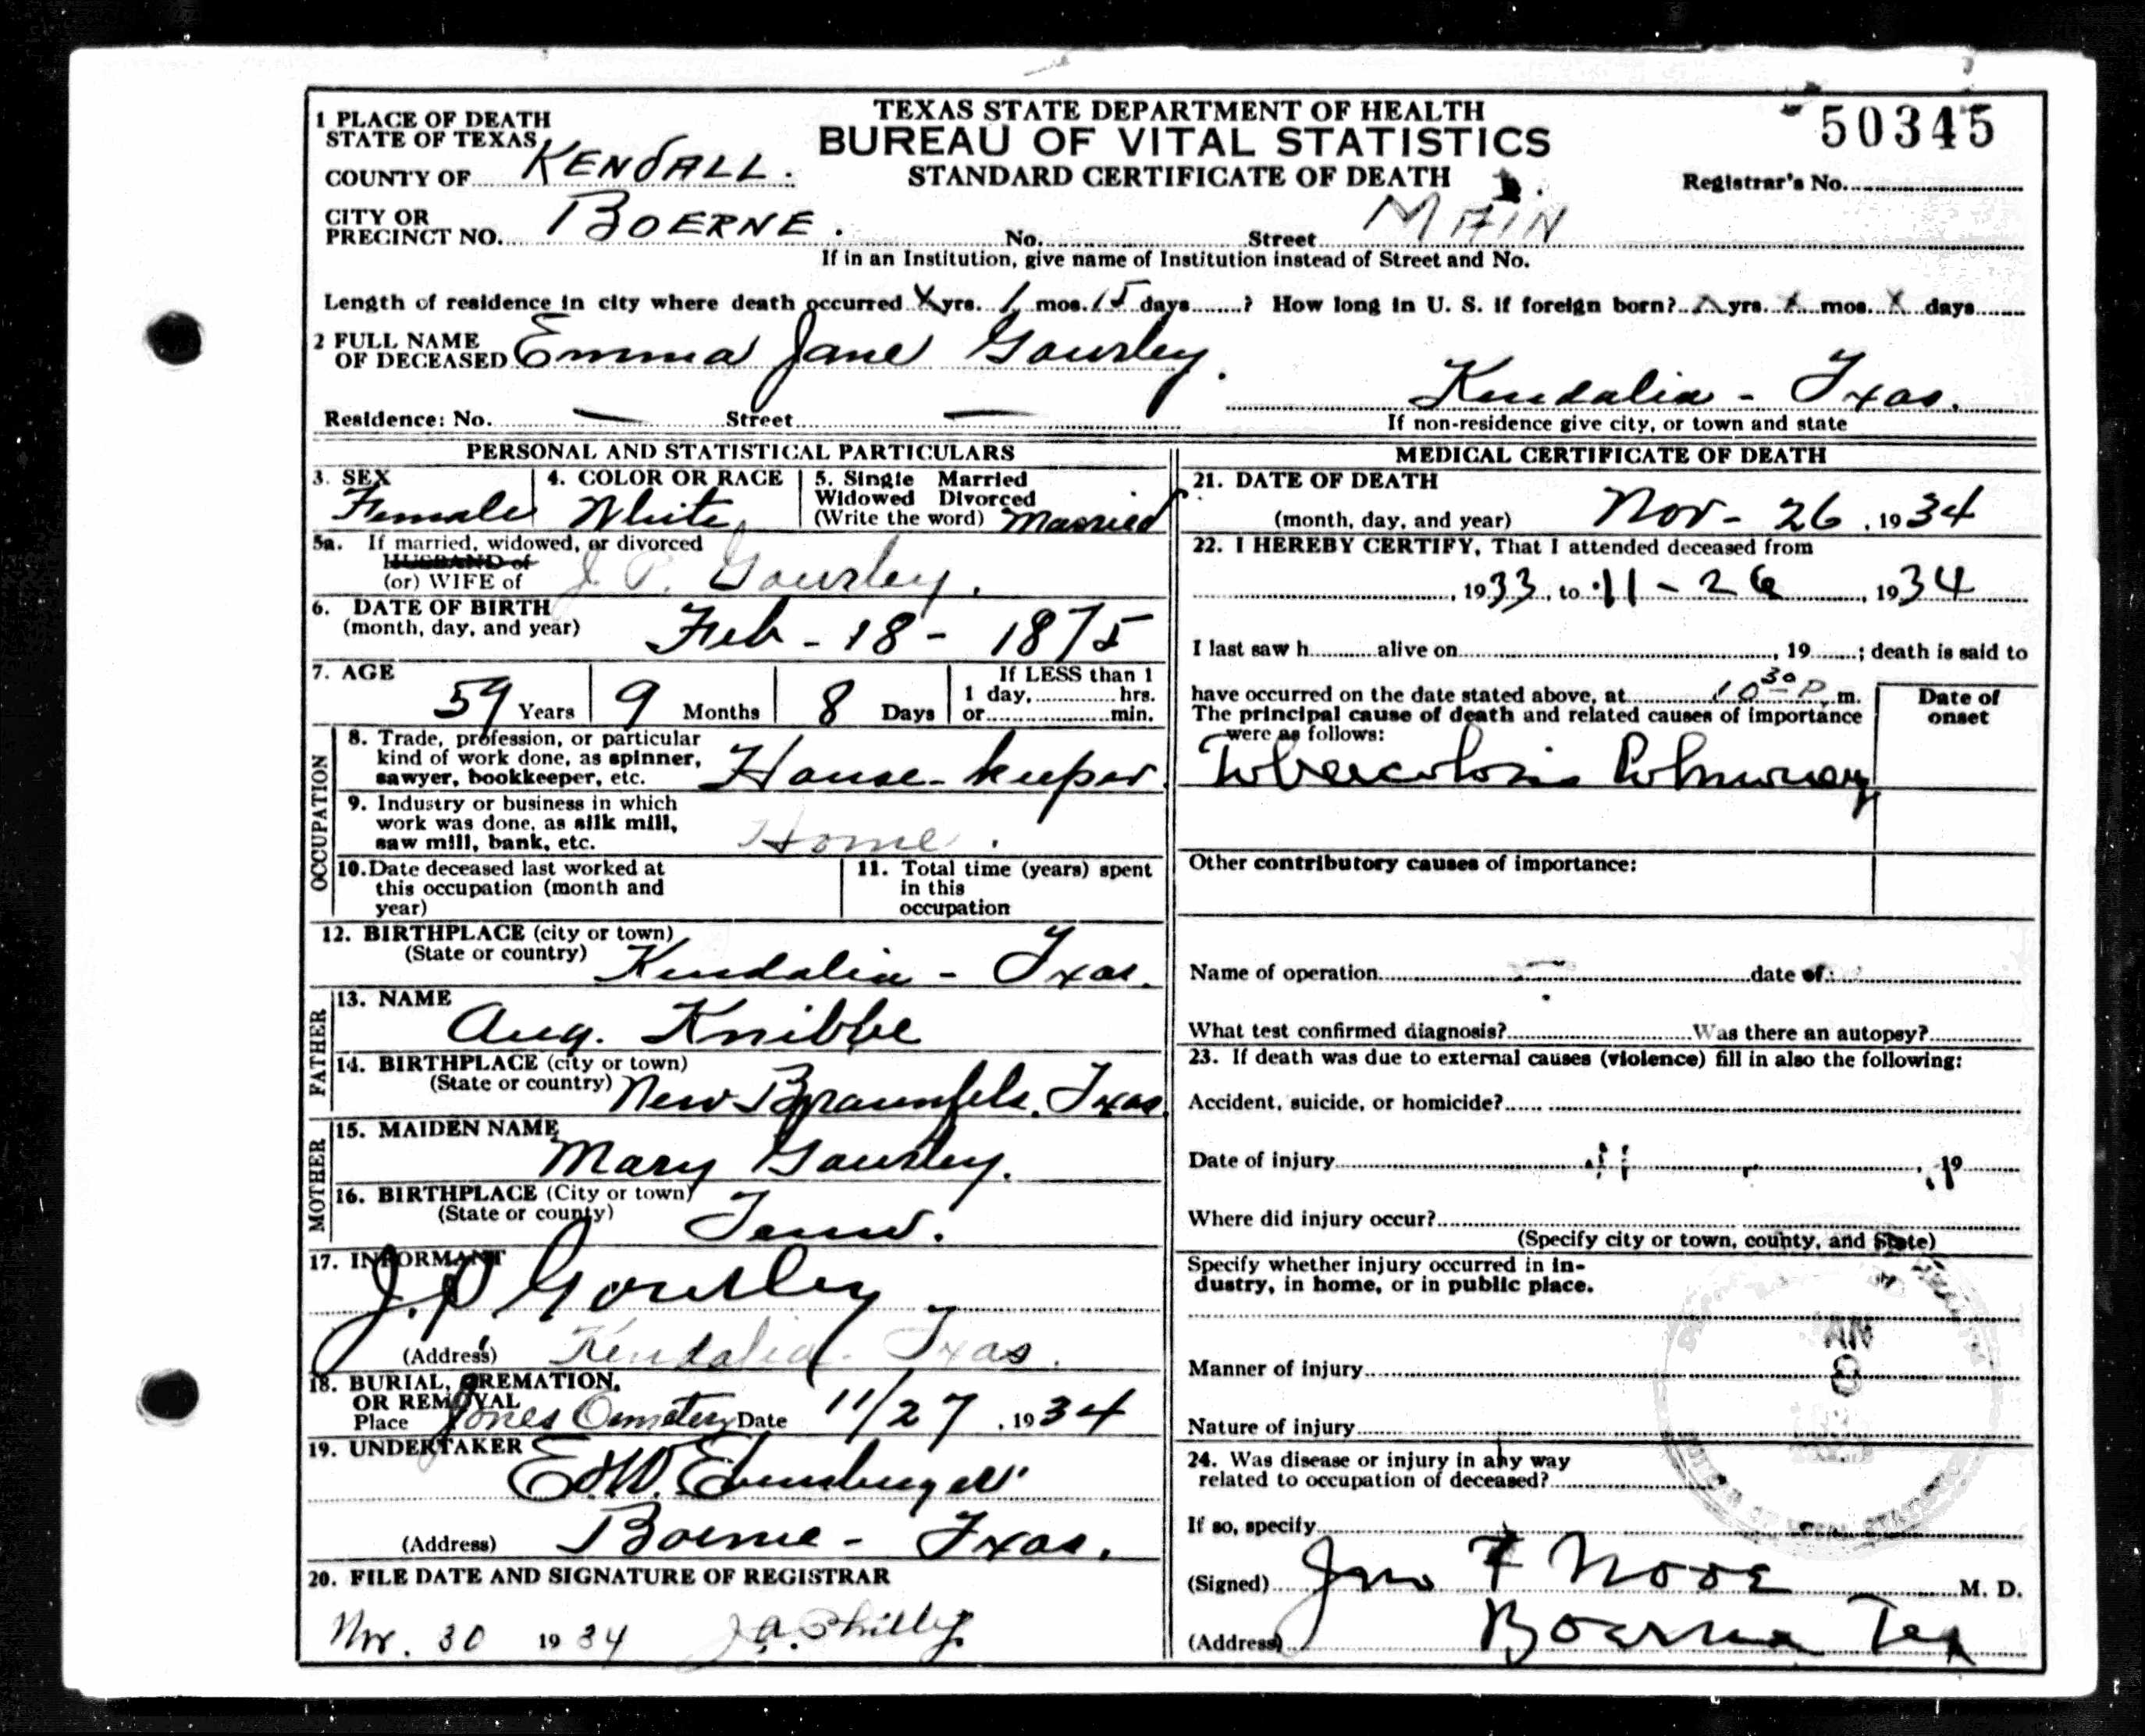 TEXAS STATE DEPARTMENT OF HEALTH
BUREAU OF VITAL STATISTICS
STANDARD CERTIFICATE OF DEATH
50345
Registrar's No.
1 PLACE OF DEATH
STATE OF TEXAS
COUNTY OF KENDALL.
CITY OR
PRECINCT NO. BOERNE. No. Street MAIN
If in an Institution, give name of Institution instead of Street and No.
Length of residence in city where death occurred X yrs. 1 mos. 15 days ? How long in U. S. if foreign born? X yrs. X mos. X days
2 FULL NAME
OF DECEASED Emma Jane Gourley.
Kendalia - Texas.
Residence: No. — Street —
If non-residence give city, or town and state
PERSONAL AND STATISTICAL PARTICULARS
3. SEX Female
4. COLOR OR RACE White
5. Single Married
Widowed Divorced
(Write the word) Married
5a. If married, widowed, or divorced
HUSBAND of
(or) WIFE of J. P. Gourley.
6. DATE OF BIRTH
(month, day, and year) Feb - 18 - 1875
7. AGE
59 Years 9 Months 8 Days
If LESS than 1
1 day, hrs.
or min.
OCCUPATION
8. Trade, profession, or particular
kind of work done, as spinner,
sawyer, bookkeeper, etc. House-keeper.
9. Industry or business in which
work was done, as silk mill,
saw mill, bank, etc. Home.
10. Date deceased last worked at
this occupation (month and
year)
11. Total time (years) spent
in this
occupation
12. BIRTHPLACE (city or town)
(State or country) Kendalia - Texas.
FATHER
13. NAME
Aug. Knibbe
14. BIRTHPLACE (city or town)
(State or country) New Braunfels, Texas
MOTHER
15. MAIDEN NAME
Mary Gourley.
16. BIRTHPLACE (City or town)
(State or county) Tenn.
17. INFORMANT
J.P. Gourley
(Address) Kendalia - Texas.
18. BURIAL, CREMATION,
OR REMOVAL
Place Jones Cemetery Date 11/27, 1934
19. UNDERTAKER
Ed. W. Ebensberger
(Address) Boerne - Texas.
20. FILE DATE AND SIGNATURE OF REGISTRAR
Nov. 30 1934 J.A. Phillip
MEDICAL CERTIFICATE OF DEATH
21. DATE OF DEATH
(month, day, and year) Nov - 26, 1934
22. I HEREBY CERTIFY, That I attended deceased from
, 1933, to 11 - 26, 1934
I last saw h alive on , 19 ; death is said to
have occurred on the date stated above, at 10 30 P. m.
The principal cause of death and related causes of importance
were as follows:
Date of
onset
Tuberculosis Pulmonary
Other contributory causes of importance:
Name of operation date of
What test confirmed diagnosis? Was there an autopsy?
23. If death was due to external causes (violence) fill in also the following:
Accident, suicide, or homicide?
Date of injury , 19
Where did injury occur?
(Specify city or town, county, and State)
Specify whether injury occurred in in-
dustry, in home, or in public place.
Manner of injury
Nature of injury
24. Was disease or injury in any way
related to occupation of deceased?
If so, specify
(Signed) Jno F Nooe M. D.
(Address) Boerne Tex